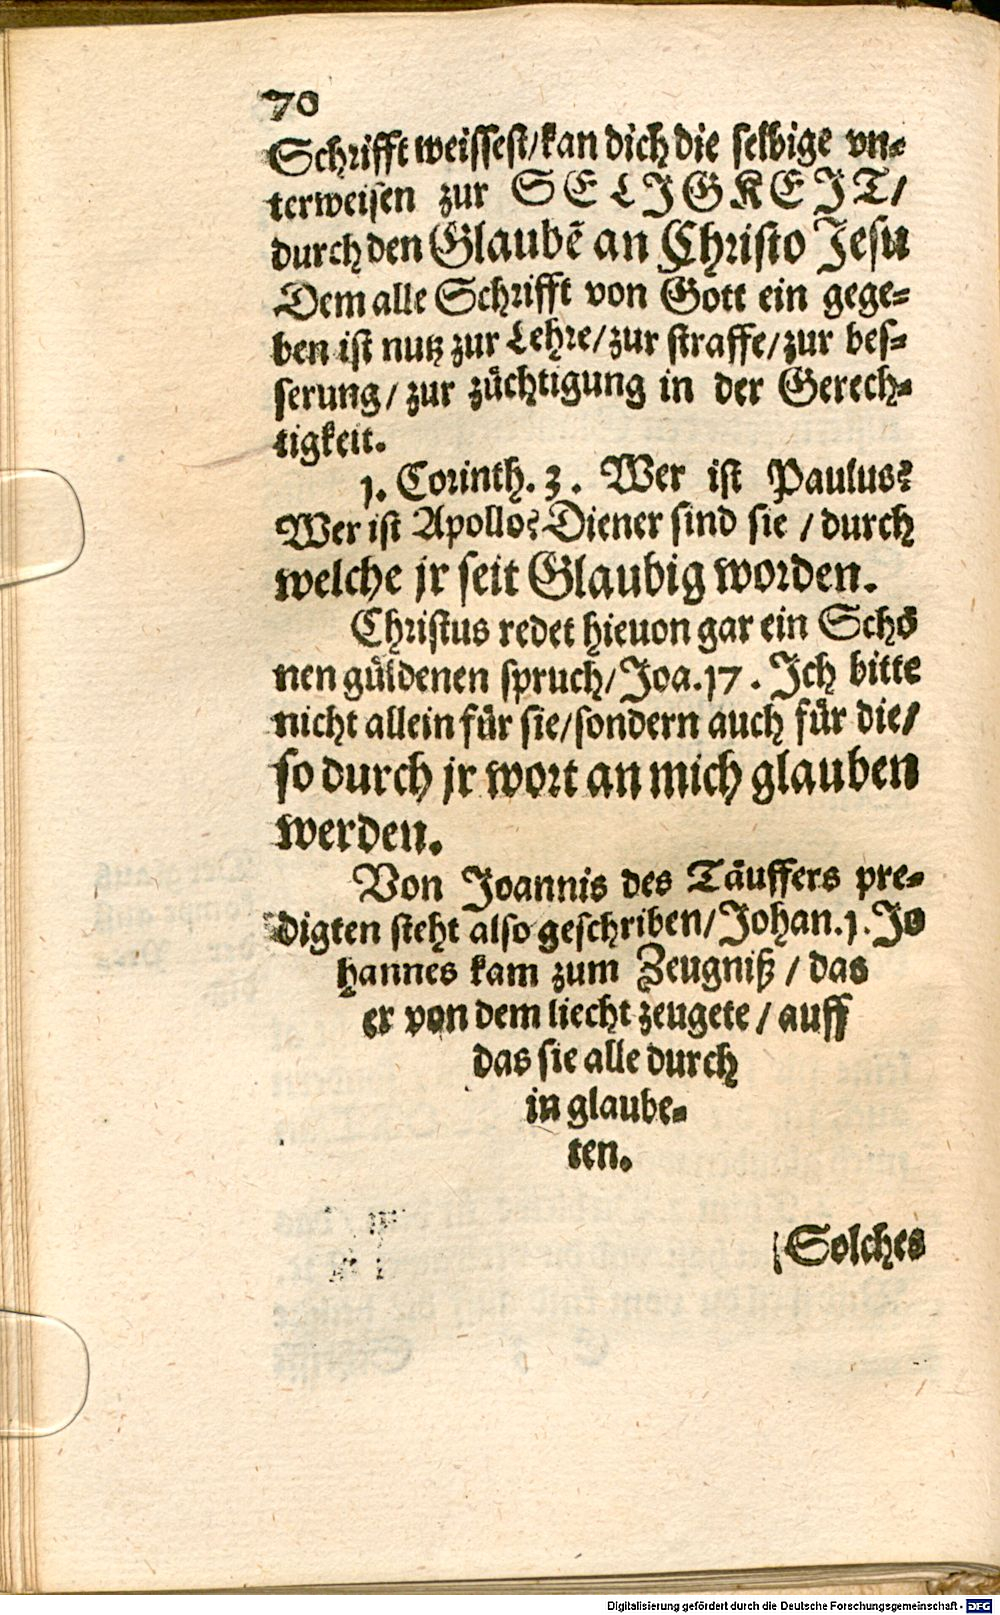 70
Schrifft weissest/kan dich die selbige vn⸗
terweisen zur SELIGKEJT/
durch den Glaubẽ an Christo Jesu
Dem alle Schrifft von Gott ein gege⸗
ben ist nutz zur Lehre/zur straffe/zur bes⸗
serung/ zur züchtigung in der Gerech⸗
tigkeit.
1. Corinth. 3. Wer ist Paulus?
Wer ist Apollo? Diener sind sie / durch
welche jr seit Glaubig worden.
Christus redet hieuon gar ein Schö
nen güldenen spruch/Joa.17. Jch bitte
nicht allein für sie/sondern auch für die/
so durch jr wort an mich glauben
werden.
Von Joannis des Täuffers pre⸗
digten steht also geschriben/Johan.1. Jo
hannes kam zum Zeugniß / das
er von dem liecht zeugete / auff
das sie alle durch
in glaube⸗
ten.
Solches
Digitalisierung gefördert durch die Deutsche Forschungsgemeinschaft - DFG